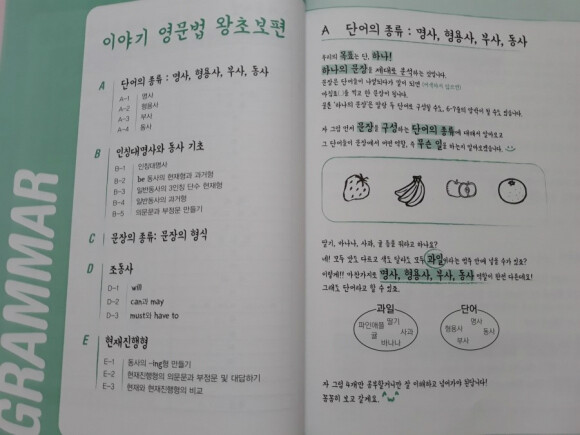 GRAMMAR
이야기 영문법 왕초보편
A 단어의 종류 : 명사, 형용사, 부사, 동사
A-1 명사
A-2 형용사
A-3 부사
A-4 동사
B 인칭대명사와 동사 기초
B-1 인칭대명사
B-2 be 동사의 현재형과 과거형
B-3 일반동사의 3인칭 단수 현재형
B-4 일반동사의 과거형
B-5 의문문과 부정문 만들기
C 문장의 종류: 문장의 형식
D 조동사
D-1 will
D-2 can과 may
D-3 must와 have to
E 현재진행형
E-1 동사의 -ing형 만들기
E-2 현재진행형의 의문문과 부정문 및 대답하기
E-3 현재와 현재진행형의 비교
A 단어의 종류 : 명사, 형용사, 부사, 동사
우리의 목표는 단, 하나!
하나의 문장을 제대로 분석하는 것입니다.
문장은 단어들이 나열되다가 말이 되면
마침표(.)을 찍고 한 문장이 됩니다.
물론 '하나의 문장'은 달랑 두 단어로 구성될 수도, 6-7줄의 영역이 될 수도 있습니다.
자 그럼 먼저 문장을 구성하는 단어의 종류에 대해서 알아보고
그 단어들이 문장에서 어떤 역할, 즉 무슨 일을 하는지 알아보겠습니다.
딸기, 바나나, 사과, 귤 등을 뭐라고 하나요?
네! 모두 맛도 다르고 색도 달라도 모두 과일이라는 범주 안에 넣을 수가 있죠?
이렇에!! 마찬가지로 명사, 형용사, 부사, 동사 역할이 한번 다른데요!
그래도 단어라고 할 수 있죠.
과일
파인애플 딸기
귤 사과
바나나
단어
명사
형용사 동사
부사
자 그럼 4개만 공부할거니깐 잘 이해하고 넘어가야 된답니다!
꼼꼼히 보고 갈게요.